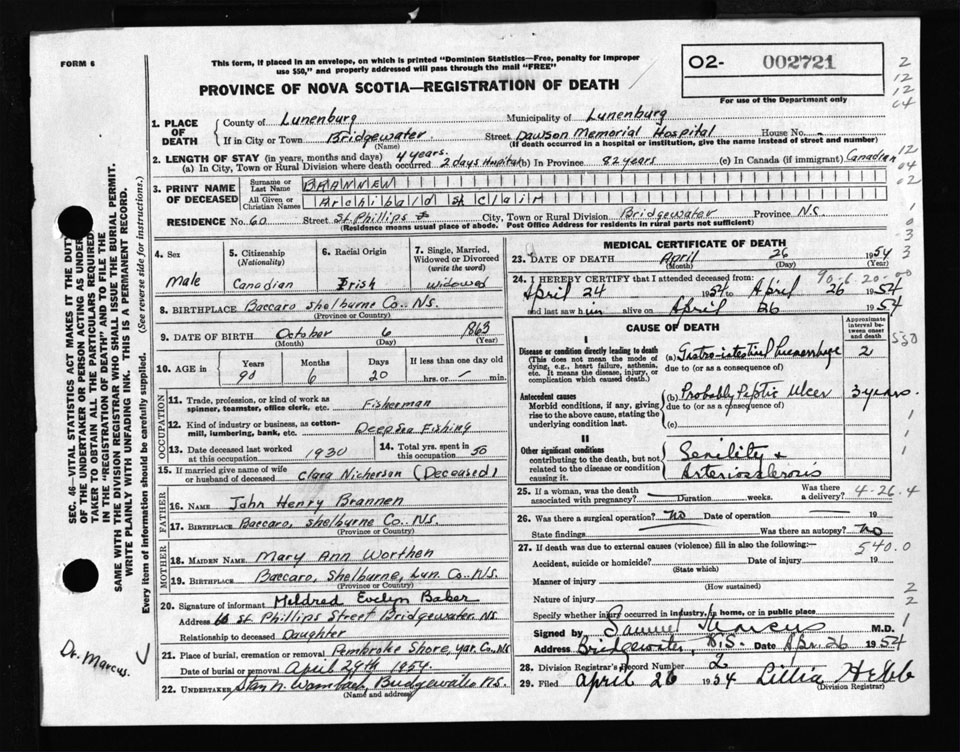 FORM 6
This form, if placed in an envelope, on which is printed "Dominion Statistics—Free, penalty for improper
use $50," and properly addressed will pass through the mail "FREE"
PROVINCE OF NOVA SCOTIA—REGISTRATION OF DEATH
02- 002721
For use of the Department only
2
12
12
04
SEC. 46—VITAL STATISTICS ACT MAKES IT THE DUTY
OF THE UNDERTAKER OR PERSON ACTING AS UNDER-
TAKER TO OBTAIN ALL THE PARTICULARS REQUIRED
IN THE "REGISTRATION OF DEATH" AND TO FILE THE
SAME WITH THE DIVISION REGISTRAR WHO SHALL ISSUE THE BURIAL PERMIT.
WRITE PLAINLY WITH UNFADING INK. THIS IS A PERMANENT RECORD.
Every item of information should be carefully supplied. (See reverse side for instructions.)
1. PLACE OF DEATH
County of Lunenburg Municipality of Lunenburg
If in City or Town Bridgewater Street Dawson Memorial Hospital House No. -
(Name) (If death occurred in a hospital or institution, give the name instead of street and number)
2. LENGTH OF STAY (in years, months and days) 4 years.
(a) In City, Town or Rural Division where death occurred 2 days Hospital (b) In Province 82 years (c) In Canada (if immigrant) Canadian
12
04
02
3. PRINT NAME OF DECEASED
Surname or Last Name BRANNEN
All Given or Christian Names Archibald St Clair
RESIDENCE No. 60 Street St. Phillips St City, Town or Rural Division Bridgewater Province N.S.
(Residence means usual place of abode. Post Office Address for residents in rural parts not sufficient)
4. Sex Male
5. Citizenship (Nationality) Canadian
6. Racial Origin Irish
7. Single, Married, Widowed or Divorced (write the word) widowed
8. BIRTHPLACE Baccaro Shelburne Co. N.S.
(Province or Country)
9. DATE OF BIRTH October 6 1863
(Month) (Day) (Year)
10. AGE in Years 90 Months 6 Days 20 If less than one day old hrs. or - min.
OCCUPATION
11. Trade, profession, or kind of work as spinner, teamster, office clerk, etc. Fisherman
12. Kind of industry or business, as cotton-mill, lumbering, bank, etc. Deep Sea Fishing
13. Date deceased last worked at this occupation 1930
14. Total yrs. spent in this occupation 50
15. If married give name of wife or husband of deceased Clara Nickerson (Deceased)
FATHER
16. NAME John Henry Brannen
17. BIRTHPLACE Baccaro, Shelburne Co. N.S.
(Province or Country)
MOTHER
18. MAIDEN NAME Mary Ann Worthen
19. BIRTHPLACE Baccaro, Shelburne, Lun. Co. N.S.
(Province or Country)
20. Signature of informant Mildred Evelyn Baker
Address 60 St. Phillips Street Bridgewater, N.S.
Relationship to deceased Daughter
21. Place of burial, cremation or removal Pembroke Shore, Yar. Co. N.S.
Date of burial or removal April 29th 1954.
22. UNDERTAKER Bridgewater N.S.
(Name and address)
Dr. Marcus.
MEDICAL CERTIFICATE OF DEATH
23. DATE OF DEATH April 26 1954
(Month) (Day) (Year)
24. I HEREBY CERTIFY that I attended deceased from:
April 24 1954 to April 26 1954
and last saw him alive on April 26 1954
CAUSE OF DEATH
Approximate interval between onset and death
I
Disease or condition directly leading to death (a) Gastro-intestinal hemorrhage 2
(This does not mean the mode of dying, e.g., heart failure, asthenia, etc. It means the disease, injury, or complication which caused death.)
due to (or as a consequence of)
Antecedent causes (b) Probably Peptic Ulcer 3 years.
Morbid conditions, if any, giving rise to the above cause, stating the underlying condition last.
due to (or as a consequence of)
(c)
II
Other significant conditions
contributing to the death, but not related to the disease or condition causing it.
Senility &
Arteriosclerosis
25. If a woman, was the death associated with pregnancy? Duration weeks. Was there a delivery?
4-26.4
26. Was there a surgical operation? no Date of operation 19
State findings Was there an autopsy? no
27. If death was due to external causes (violence) fill in also the following:—
540.0
Accident, suicide or homicide? Date of injury 19
(State which)
Manner of injury
(How sustained)
Nature of injury
Specify whether injury occurred in industry, in home, or in public place
Signed by Samuel Marcus M.D.
Address Bridgewater, N.S. Date Apr. 26 1954
28. Division Registrar's Record Number 2
29. Filed April 26 1954 Lillia Hebb
(Division Registrar)